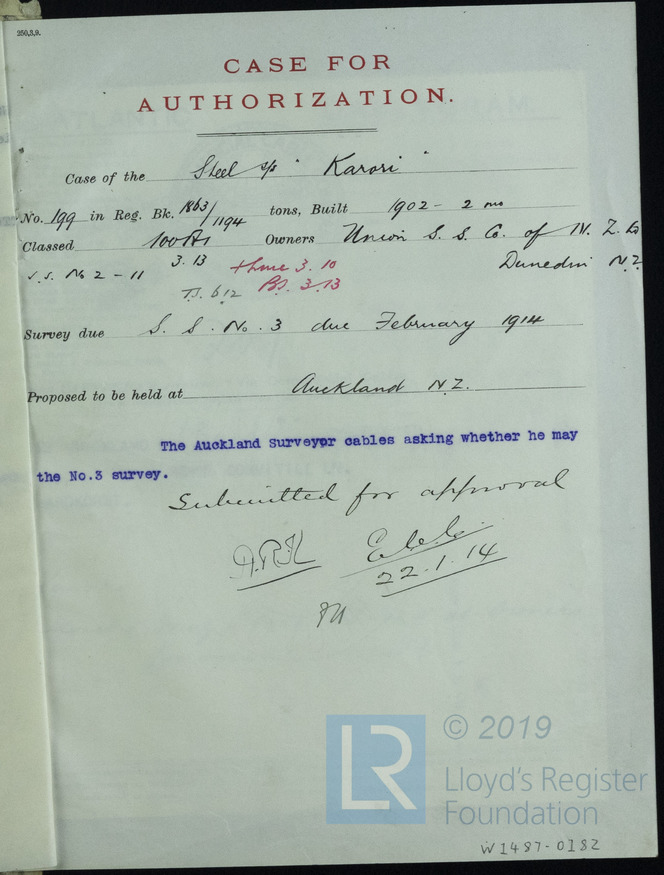 250,3,9.
CASE FOR
AUTHORIZATION.
Case of the Steel s/s "Karori"
No. 199 in Reg. Bk. 1863/1194 tons, Built 1902 - 2 mo
Classed 100A1 Owners Union S. S. Co. of N. Z. Ld
3.13 Dunedin N.Z
S.S. No 2 - 11 3.10
T.S. 6.12 BS. 3.13
Survey due S. S. No. 3 due February 1914
Proposed to be held at Auckland N.Z.
The Auckland Surveyor cables asking whether he may
the No.3 survey.
Submitted for approval
22.1.14
LR
© 2019
Lloyd's Register
Foundation
W1487-0182